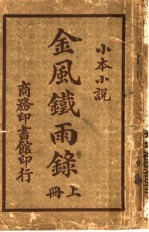 小本小說
金風鐵雨錄
上冊
商務印書館印行